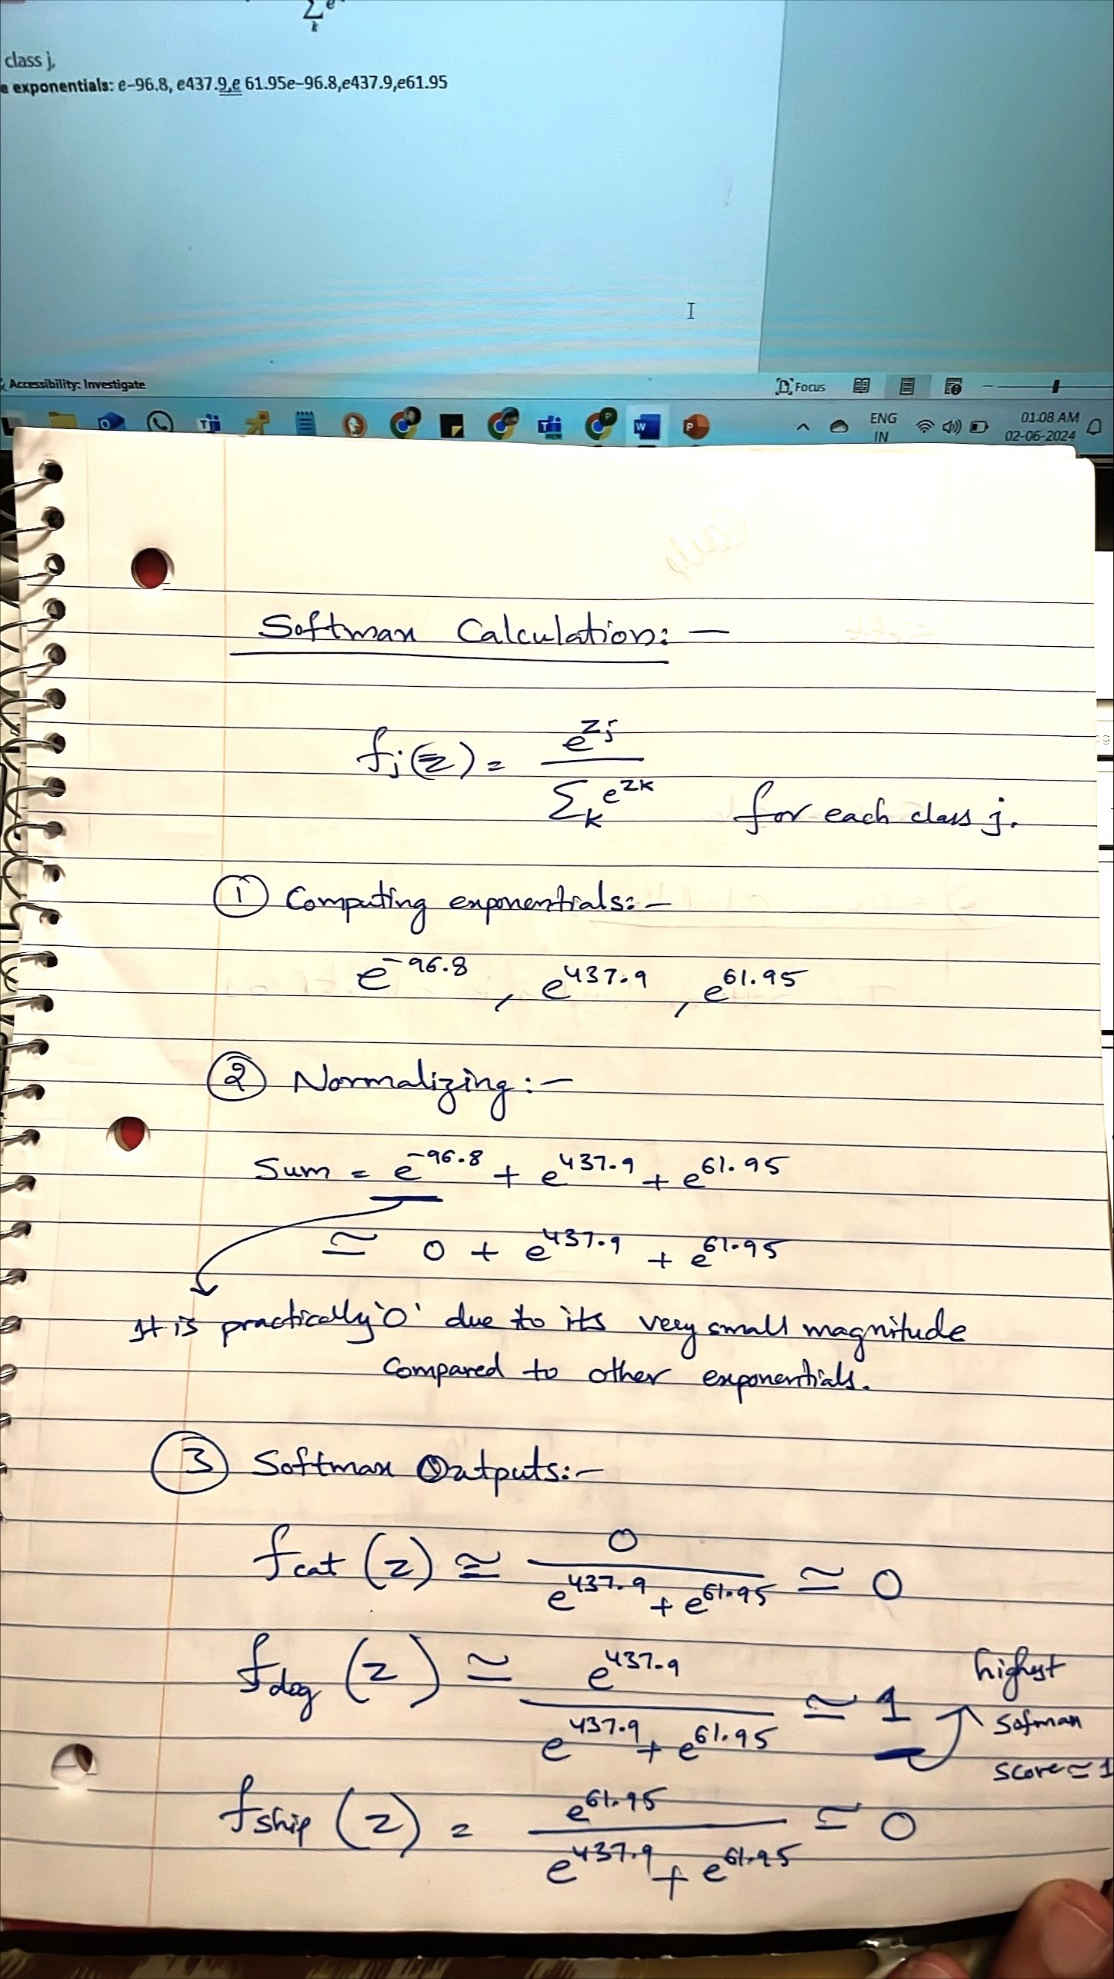 ∑ e
k
class j,
e exponentials: e−96.8, e437.9,e 61.95e−96.8,e437.9,e61.95
Accessibility: Investigate
Focus
ENG
IN
01:08 AM
02-06-2024
Softmax Calculation: —
fj(z) = e^zj / ∑k e^zk for each class j.
① Computing exponentials: —
e^-96.8 , e^437.9 , e^61.95
② Normalizing : —
Sum = e^-96.8 + e^437.9 + e^61.95
≃ 0 + e^437.9 + e^61.95
It is practically '0' due to its very small magnitude
Compared to other exponentials.
③ Softmax Outputs: —
fcat (z) ≅ 0 / e^437.9 + e^61.95 ≃ 0
fdog (z) ≃ e^437.9 / e^437.9 + e^61.95 ≃ 1
highest
Sofmax
score ≃ 1
fship (z) = e^61.95 / e^437.9 + e^61.95 ≃ 0